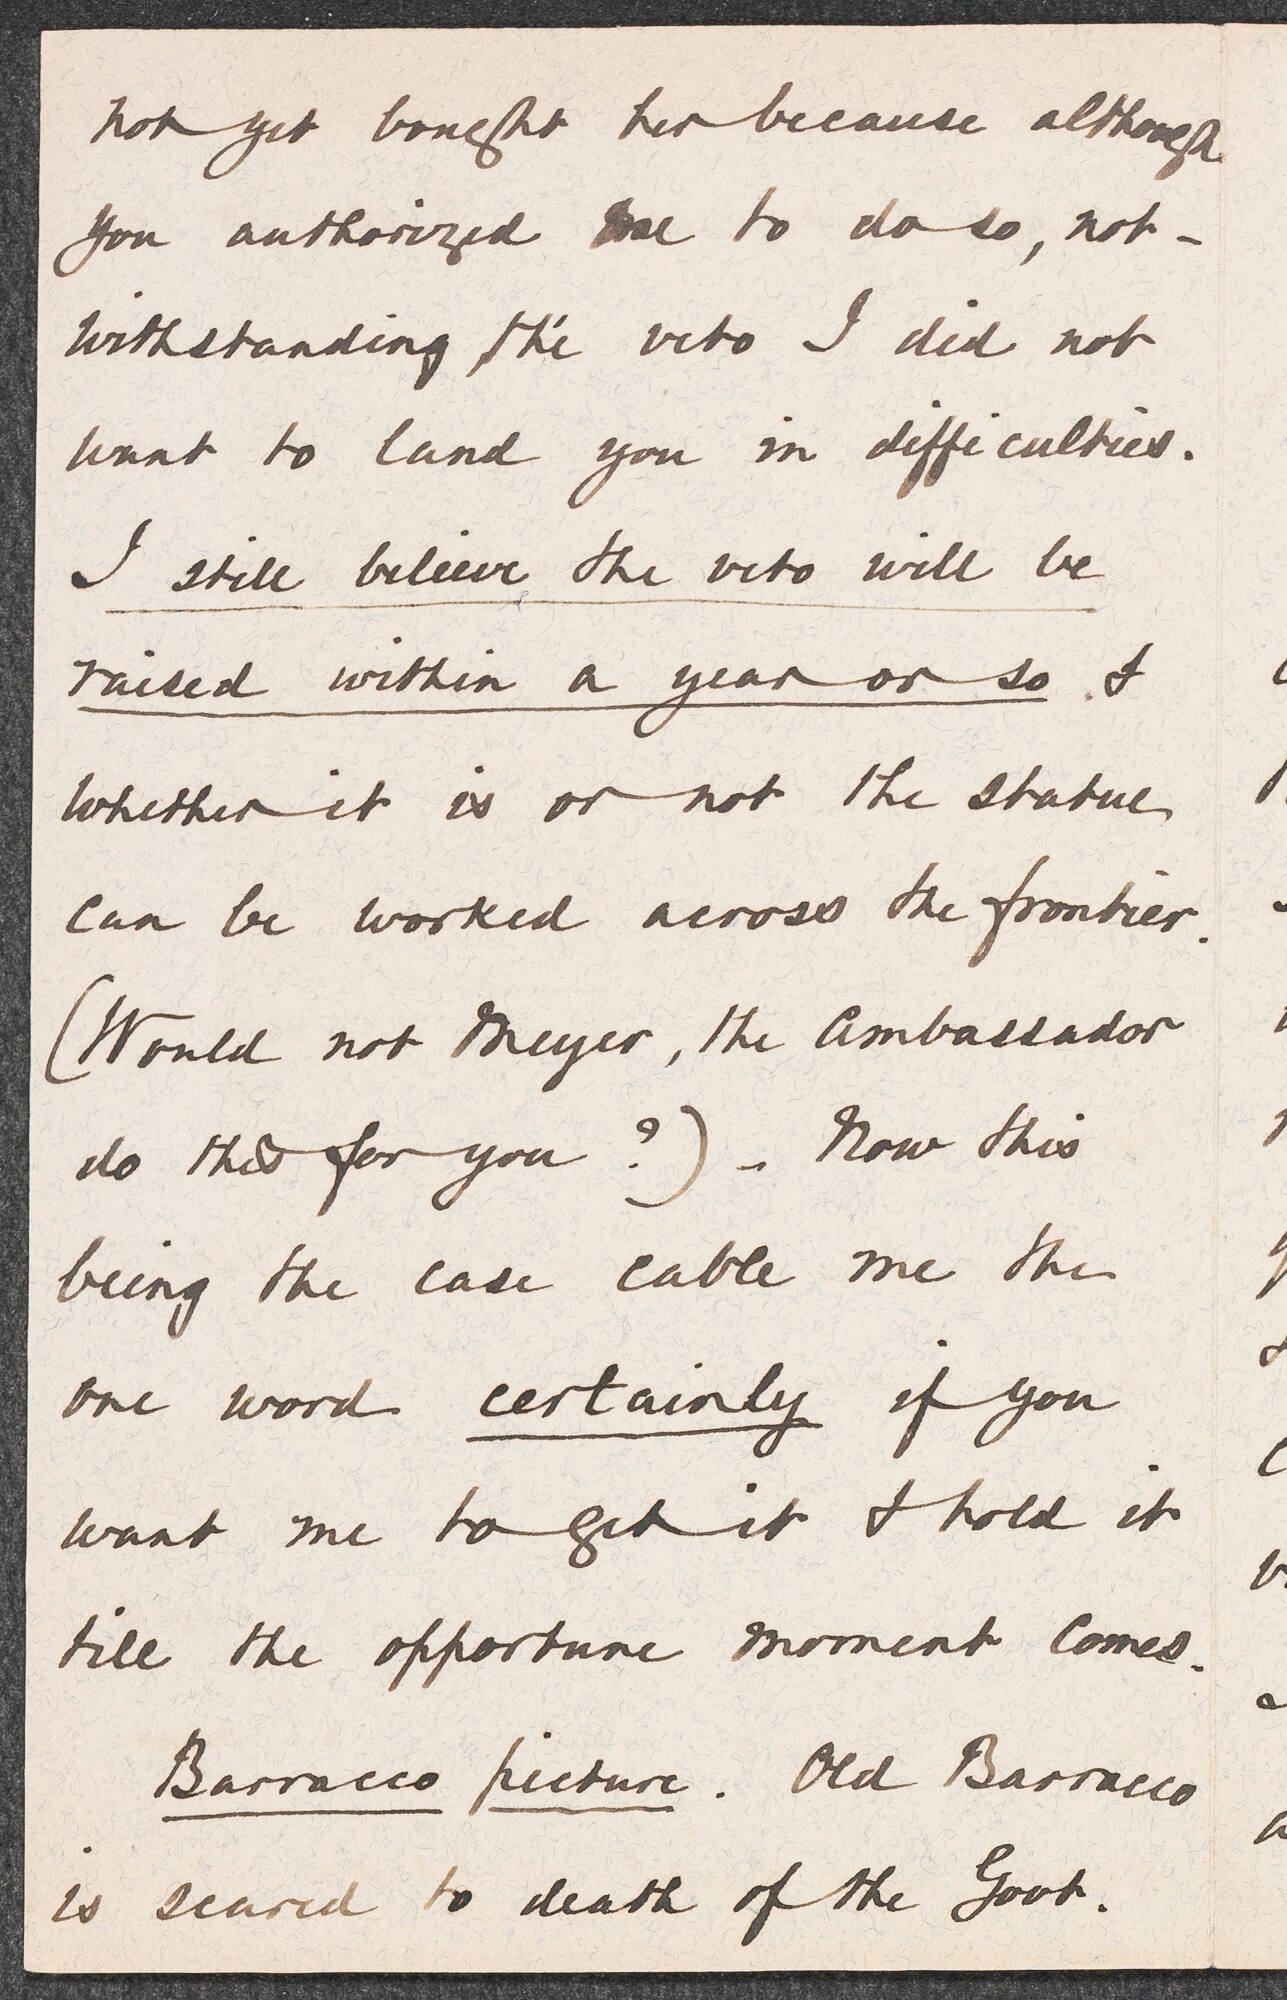 not yet bought her because although
you authorized me to do so, not-
withstanding the veto I did not
want to land you in difficulties.
I still believe the veto will be
raised within a year or so &
whether it is or not the statue
can be worked across the frontier.
(Would not Meyer, the Ambassador
do this for you?) - Now this
being the case cable me the
one word certainly if you
want me to get it & hold it
till the opportune moment comes.
Barracco picture. Old Barracco
is scared to death of the Govt.